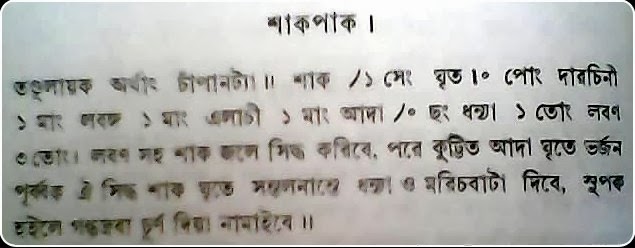 শাকপাক ।
অর্থাৎ চাঁপানটা॥ শাক /১ সের ঘৃত ।০ পোঃ দারচিনী
১ মাঃ লবঙ্গ ১ মাঃ এলাচী ১ মাঃ আদা /০ ছঃ ধন্যা ১ তোঃ লবণ
৩ তোঃ। লবণ সহ শাক জলে সিদ্ধ করিবে, পরে কুট্টিত আদা ঘৃতে ভর্জন
পূর্ব্বক ঐ সিদ্ধ শাক ঘৃতে ধন্যা ও মরিচবাটা দিবে, সুপক্ব
হইলে গন্ধদ্রব্য চূর্ণ দিয়া নামাইবে ॥